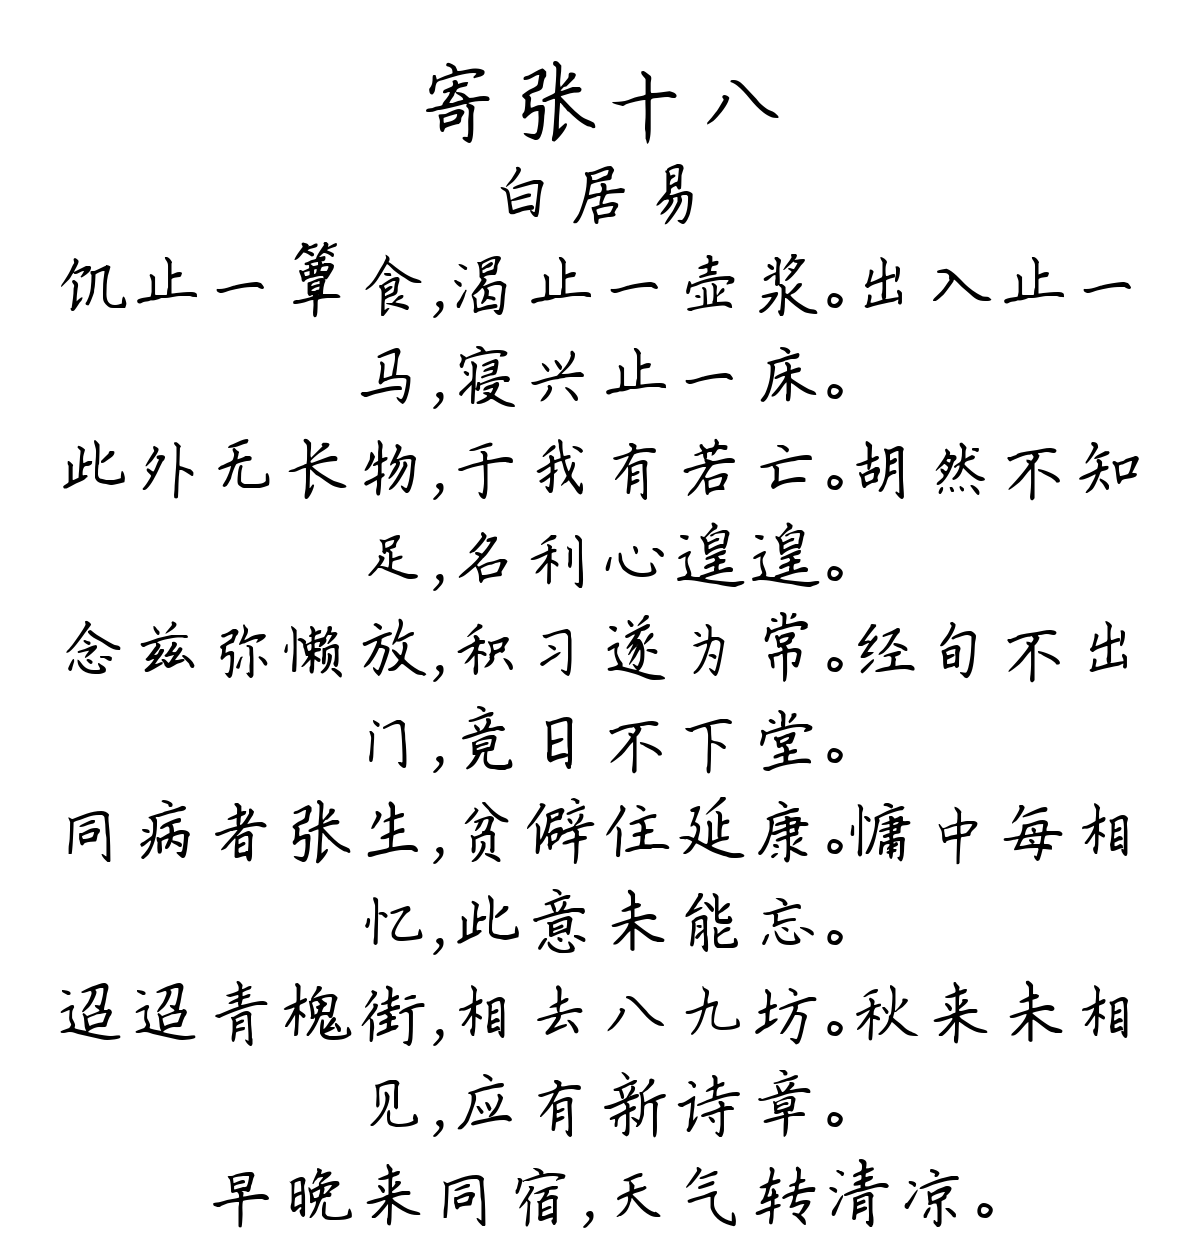 寄张十八
白居易
饥止一簟食,渴止一壶浆。出入止一
马,寝兴止一床。
此外无长物,于我有若亡。胡然不知
足,名利心遑遑。
念兹弥懒放,积习遂为常。经旬不出
门,竟日不下堂。
同病者张生,贫僻住延康。慵中每相
忆,此意未能忘。
迢迢青槐街,相去八九坊。秋来未相
见,应有新诗章。
早晚来同宿,天气转清凉。